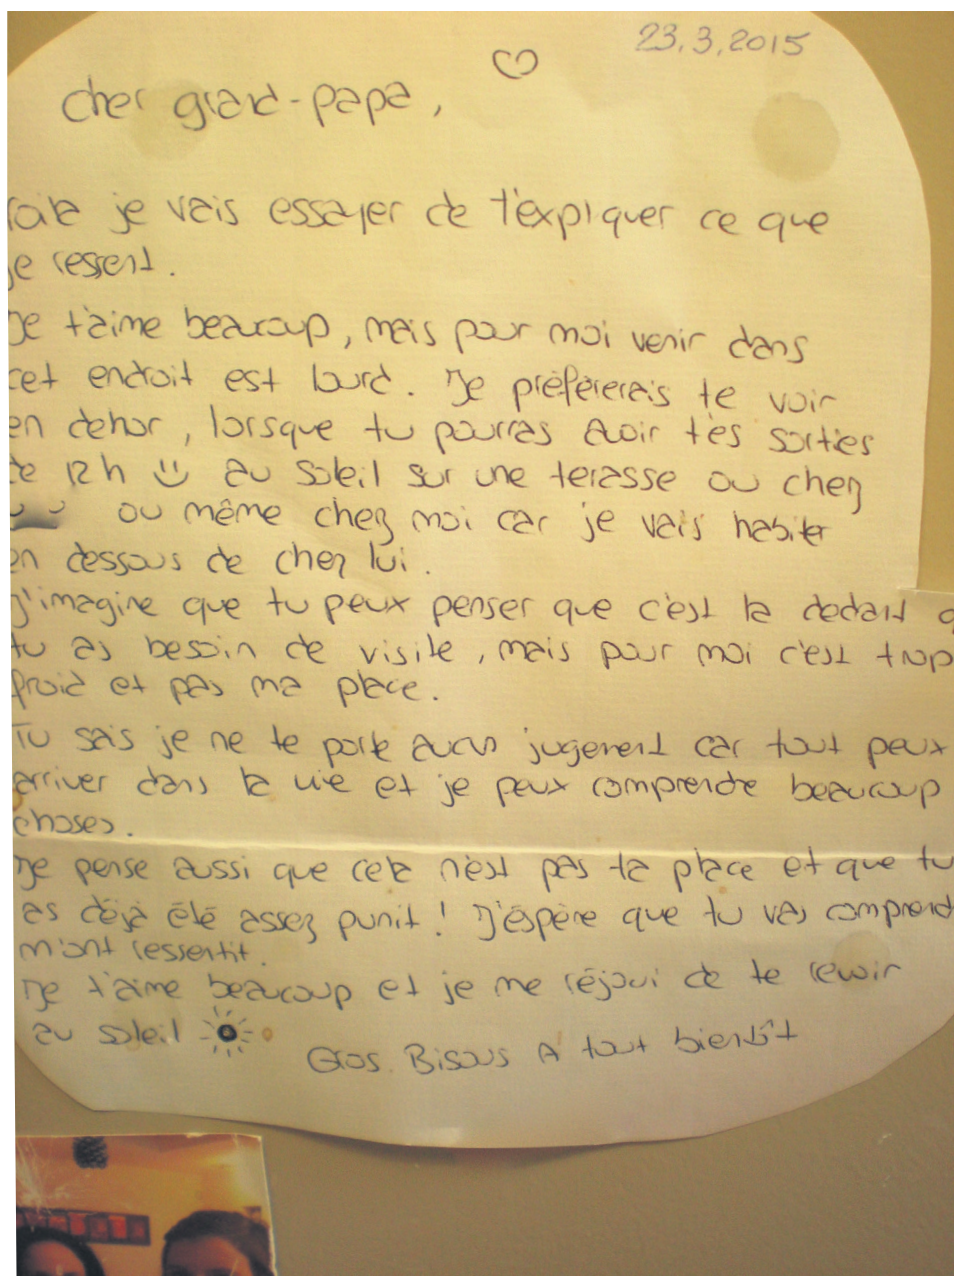 23.3.2015
cher grand-papa,
voila je vais essayer de t'expliquer ce que
je ressent.
Je t'aime beaucoup, mais pour moi venir dans
cet endroit est lourd. Je préfèrerais te voir
en dehor, lorsque tu pourras avoir tes sorties
de 12h au soleil sur une terasse ou chez
ou même chez moi car je vais habiter
en dessous de chez lui.
J'imagine que tu peux penser que c'est la dedant q
tu as besoin de visite, mais pour moi c'est trop
froid et pas ma place.
Tu sais je ne te porte aucun jugement car tout peux
arriver dans la vie et je peux comprendre beaucoup
choses.
Je pense aussi que cela n'est pas ta place et que tu
as déjà été assez punit! J'éspère que tu vas comprend
mont ressentit.
Je t'aime beaucoup et je me réjoui de te revoir
au soleil
Gros Bisous A tout bientôt